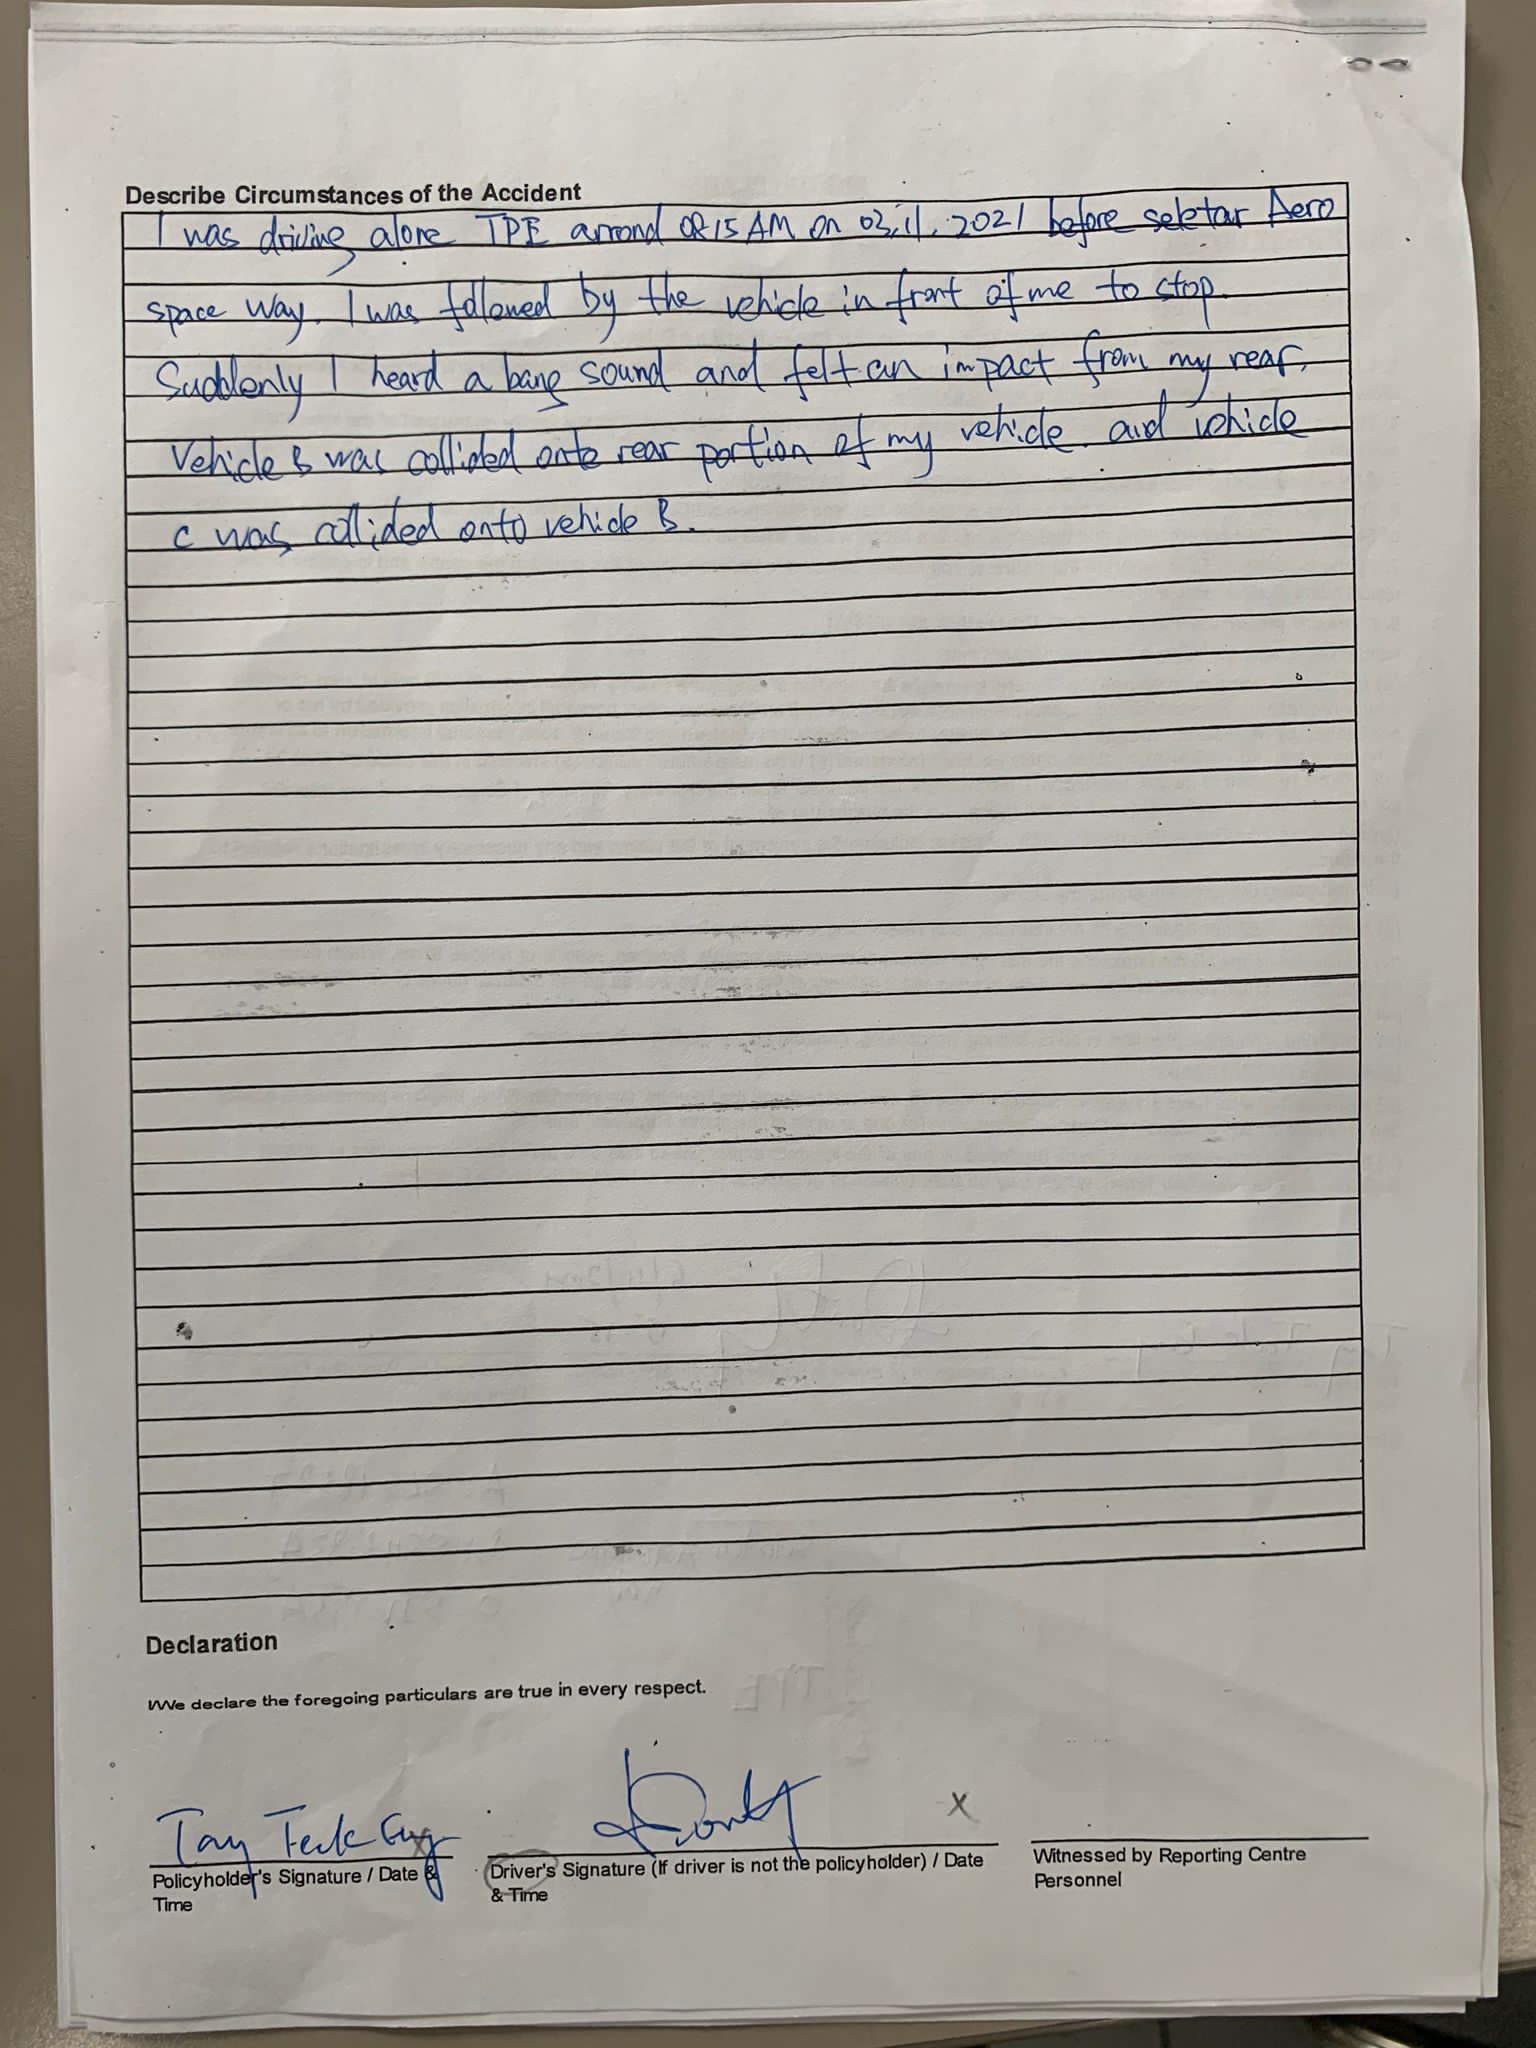 Describe Circumstances of the Accident
I was driving alone TPE arrond 0815AM on 03.11.2021 before seletar Aero
space way. I was followed by the vehicle in front of me to stop.
Suddenly I heard a bang sound and felt an impact from my rear.
Vehicle B was collided onto rear portion of my vehicle. and vehicle
C was collided onto vehicle B.
Declaration
I/We declare the foregoing particulars are true in every respect.
Tay Teck
X
Policyholder's Signature / Date & Time
Driver's Signature (If driver is not the policyholder) / Date & Time
Witnessed by Reporting Centre Personnel